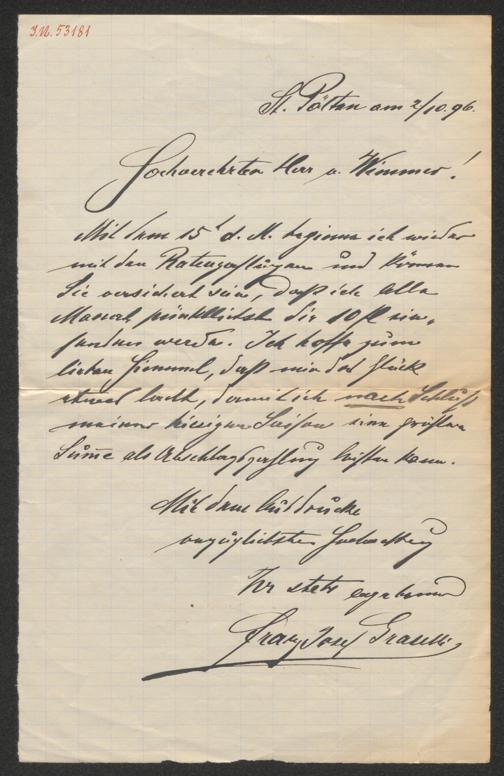 J.N. 53181
St. Pölten am 2/10.96.
Hochverehrter Herr v. Wimmer!
Mit dem 15t d. M. beginne ich wieder
mit den Ratenzahlungen und können
Sie versichert sein, daß ich alle
Monat pünktlichst die 10 fl ein-
senden werde. Ich hoffe zum
lieben Himmel, daß mir das Glück
etwas lacht, damit ich nach Schluß
meiner hiesigen Saison eine größere
Sum̅e als Abschlagszahlung leisten kann.
Mit dem Ausdrucke
vorzüglichster Hochachtung
Ihr stets ergebener
Franz Josef Graselli